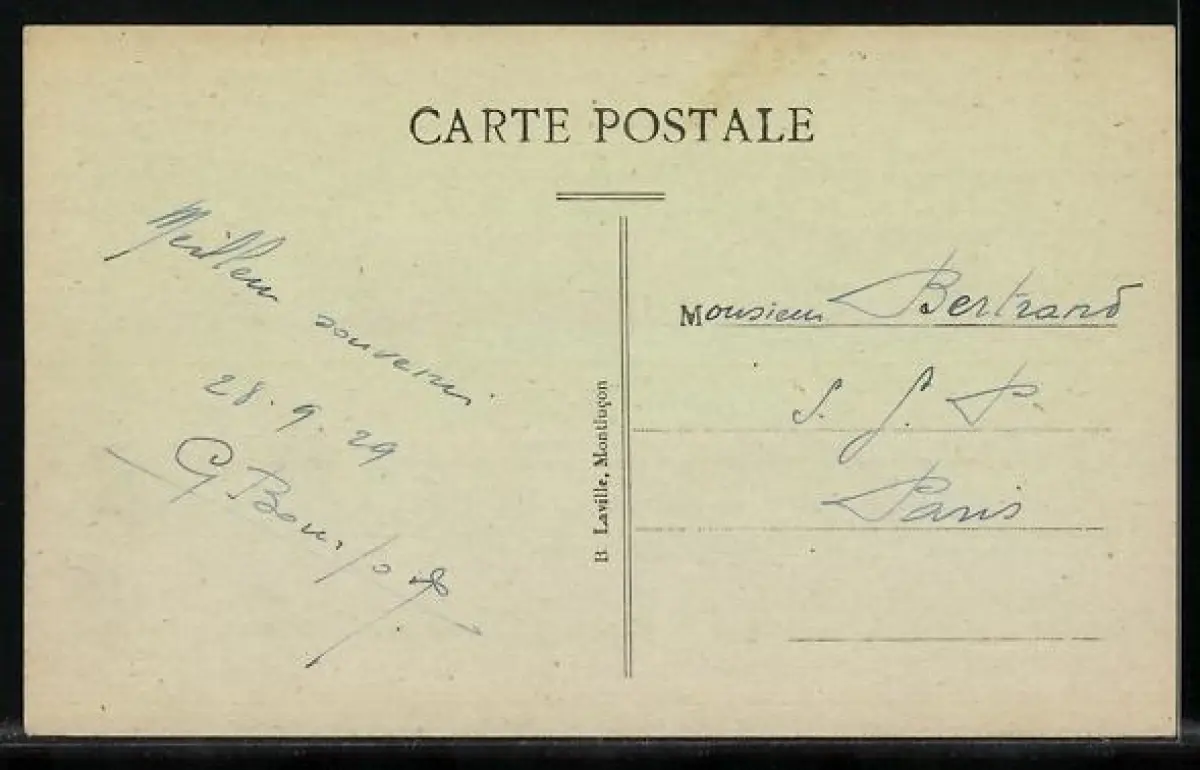 CARTE POSTALE
Meilleur souvenir
28.9.29
G
Monsieur Bertrand
S. G. P.
Paris
B. Laville, Montluçon